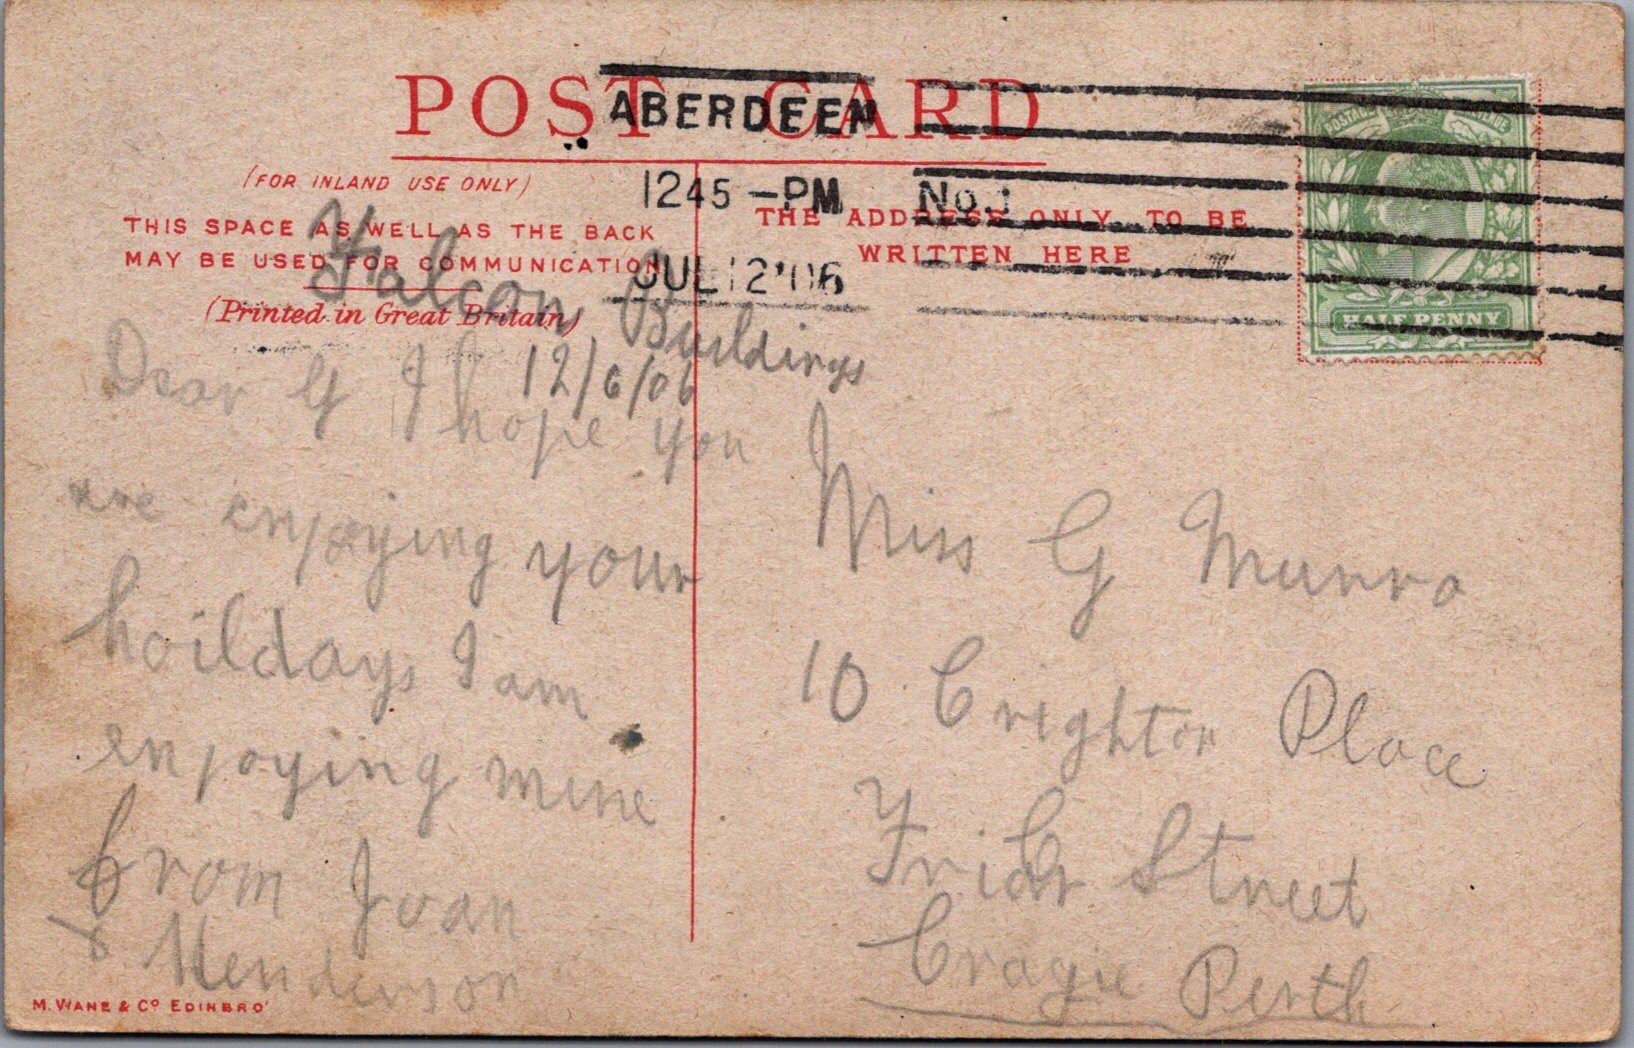 POST CARD
ABERDEEN
1245-PM No.1
JUL 12 '06
(FOR INLAND USE ONLY)
THIS SPACE AS WELL AS THE BACK
MAY BE USED FOR COMMUNICATION
(Printed in Great Britain)
THE ADDRESS ONLY TO BE
WRITTEN HERE
HALF PENNY
Falcon Buildings
12/6/06
Dear G I hope you
are enjoying your
hoildays I am
enjoying mine
from Joan
Henderson
Miss G Munro
10 Crighton Place
Friar Street
Cragie Perth
M. WANE & Co EDINBRO'